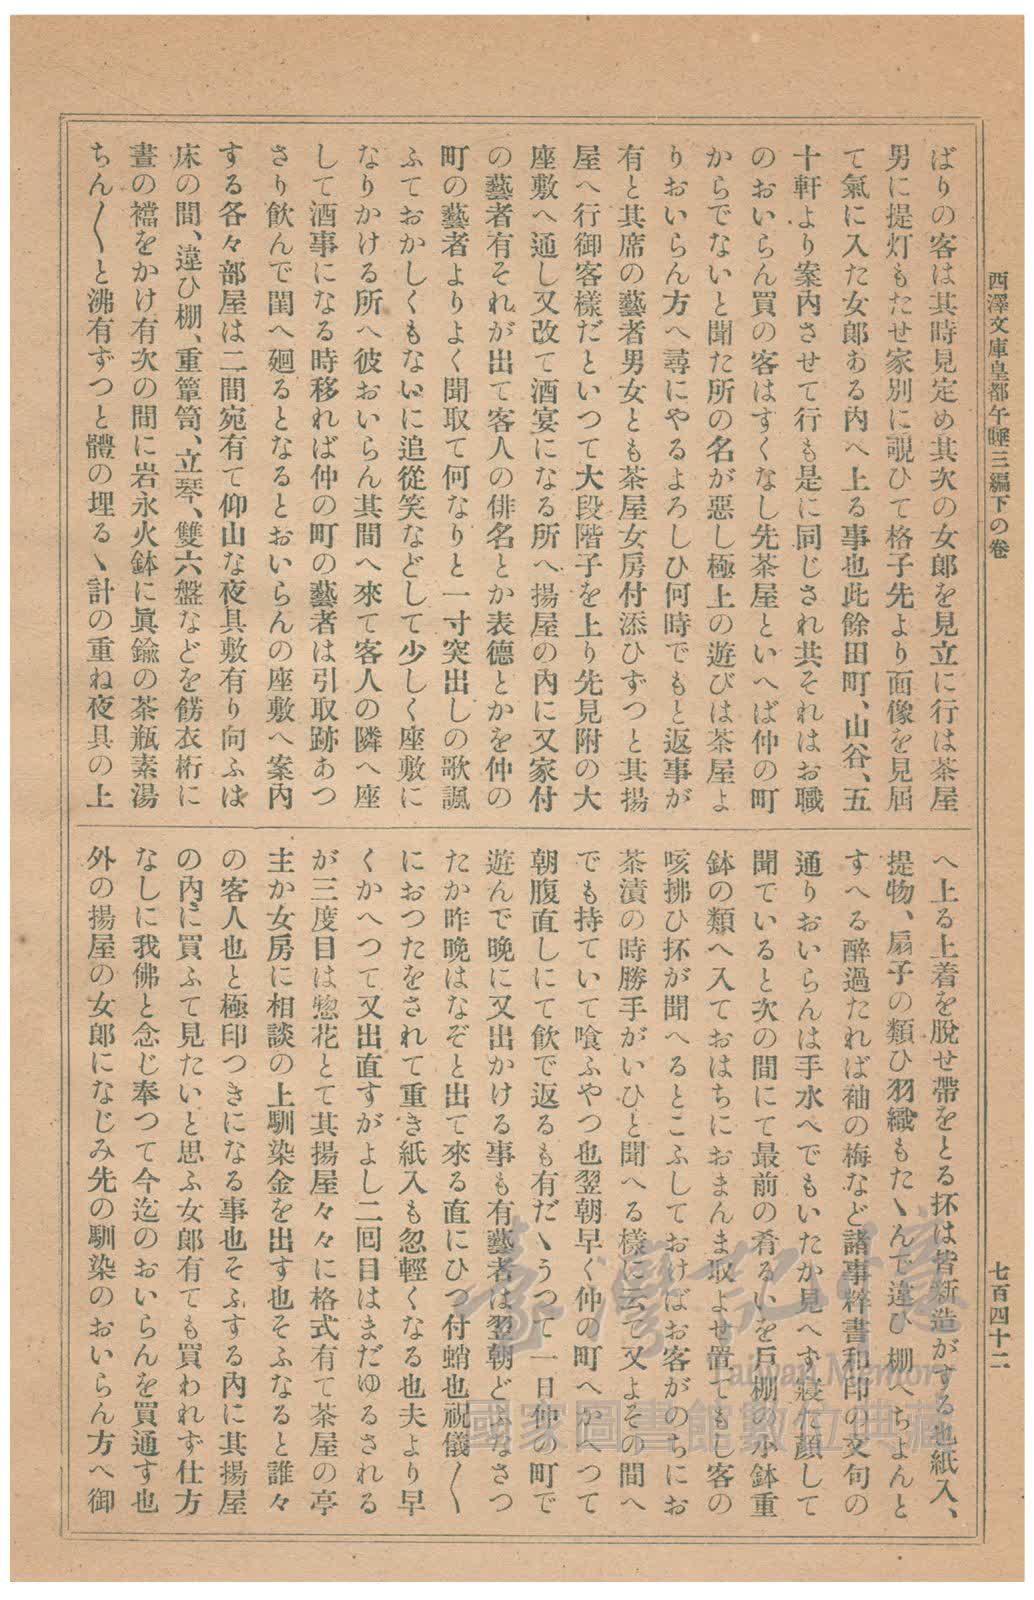 西澤文庫皇都午睡三編下の卷
七百四十二
ばりの客は其時見定め其次の女郎を見立に行は茶屋
男に提灯もたせ家別に覗ひて格子先より面像を見屆
て氣に入た女郎ある內へ上る事也此餘田町、山谷、五
十軒より案內させて行も是に同じされ共それはお職
のおいらん買の客はすくなし先茶屋といへば仲の町
からでないと聞た所の名が惡し極上の遊びは茶屋よ
りおいらん方へ尋にやるよろしひ何時でもと返事が
有と其席の藝者男女とも茶屋女房付添ひずつと其揚
屋へ行御客樣だといつて大段階子を上り先見附の大
座敷へ通し又改て酒宴になる所へ揚屋の內に又家付
の藝者有それが出て客人の俳名とか表德とかを仲の
町の藝者よりよく聞取て何なりと一寸突出しの歌諷
ふておかしくもないに追從笑などして少しく座敷に
なりかける所へ彼おいらん其間へ來て客人の隣へ座
して酒事になる時移れば仲の町の藝者は引取跡あつ
さり飮んで閨へ廻るとなるとおいらんの座敷へ案內
する各々部屋は二間宛有て仰山な夜具敷有り向ふは
床の間、違ひ棚、重簞笥、立琴、雙六盤などを餝衣桁に
晝の襠をかけ有次の間に岩永火鉢に眞鍮の茶瓶素湯
ちん〳〵と沸有ずつと體の埋る丶計の重ね夜具の上
へ上る上着を脫せ帶をとる抔は皆新造がする也紙入、
提物、扇子の類ひ羽織もた丶んで違ひ棚へちよんと
すへる醉過たれば袖の梅など諸事粹書和印の文句の
通りおいらんは手水へでもいたか見へず寢た顏して
聞ていると次の間にて最前の肴るいを戶棚の小鉢重
鉢の類へ入ておはちにおまんま取よせ置てもし客の
咳拂ひ抔が聞へるとこふしておけばお客がのちにお
茶漬の時勝手がいひと聞へる樣に云て又よその間へ
でも持ていて喰ふやつ也翌朝早く仲の町へかへつて
朝腹直しにて飮で返るも有だ丶うつて一日仲の町で
遊んで晚に又出かける事も有藝者は翌朝どふなさつ
たか昨晚はなぞと出て來る直にひつ付蛸也祝儀〳〵
におつたをされて重き紙入も忽輕くなる也夫より早
くかへつて又出直すがよし二囘目はまだゆるされる
が三度目は惣花とて其揚屋々々に格式有て茶屋の亭
主か女房に相談の上馴染金を出す也そふなると誰々
の客人也と極印つきになる事也そふする內に其揚屋
の內に買ふて見たいと思ふ女郎有ても買われず仕方
なしに我佛と念じ奉つて今迄のおいらんを買通す也
外の揚屋の女郎になじみ先の馴染のおいらん方へ御
臺灣記憶
Taiwan Memory
國家圖書館數位典藏